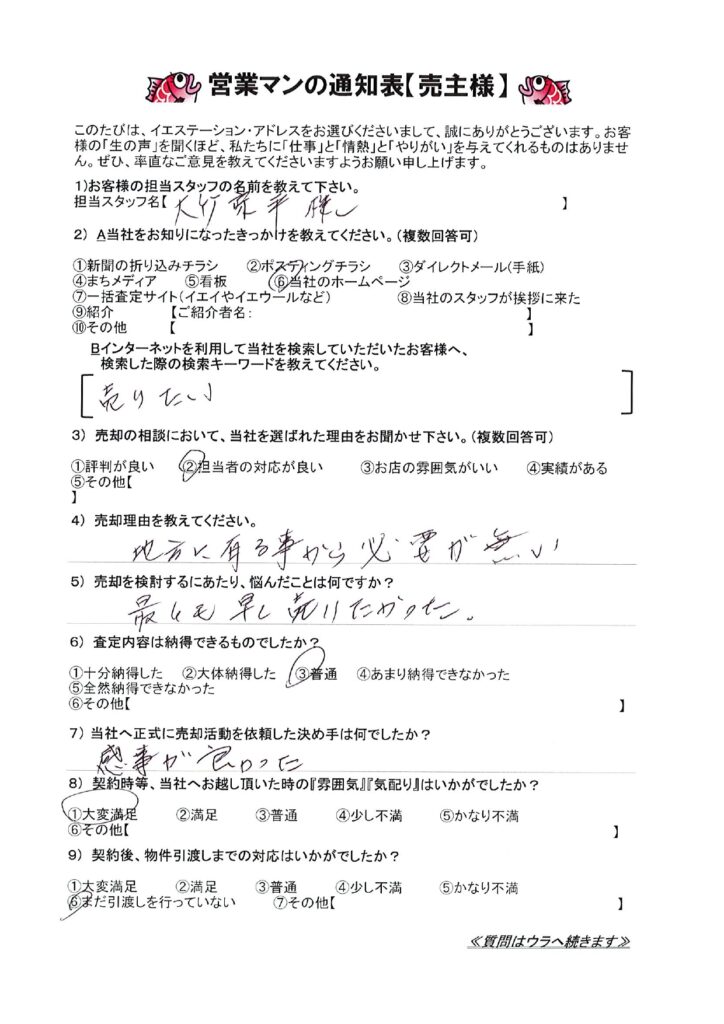 営業マンの通知表【売主様】
このたびは、イエステーション・アドレスをお選びくださいまして、誠にありがとうございます。お客
様の「生の声」を聞くほど、私たちに「仕事」と「情熱」と「やりがい」を与えてくれるものはありませ
ん。ぜひ、率直なご意見を教えてくださいますようお願い申し上げます。
1)お客様の担当スタッフの名前を教えて下さい。
担当スタッフ名【 大竹 平 様 】
2) A当社をお知りになったきっかけを教えてください。(複数回答可)
①新聞の折り込みチラシ ②ポスティングチラシ ③ダイレクトメール(手紙)
④まちメディア ⑤看板 ⑥当社のホームページ
⑦一括査定サイト(イエイやイエウールなど) ⑧当社のスタッフが挨拶に来た
⑨紹介 【ご紹介者名: 】
⑩その他 【 】
Bインターネットを利用して当社を検索していただいたお客様へ、
検索した際の検索キーワードを教えてください。
[売りたい]
3) 売却の相談において、当社を選ばれた理由をお聞かせ下さい。(複数回答可)
①評判が良い ②担当者の対応が良い ③お店の雰囲気がいい ④実績がある
⑤その他【
】
4) 売却理由を教えてください。
地方に有る事から必要が無い
5) 売却を検討するにあたり、悩んだことは何ですか?
最も早く売りたかった。
6) 査定内容は納得できるものでしたか?
①十分納得した ②大体納得した ③普通 ④あまり納得できなかった
⑤全然納得できなかった
⑥その他【 】
7) 当社へ正式に売却活動を依頼した決め手は何でしたか?
感事が良かった
8) 契約時等、当社へお越し頂いた時の『雰囲気』『気配り』はいかがでしたか?
①大変満足 ②満足 ③普通 ④少し不満 ⑤かなり不満
⑥その他【 】
9) 契約後、物件引渡しまでの対応はいかがでしたか?
①大変満足 ②満足 ③普通 ④少し不満 ⑤かなり不満
⑥まだ引渡しを行っていない ⑦その他【 】
≪質問はウラへ続きます≫